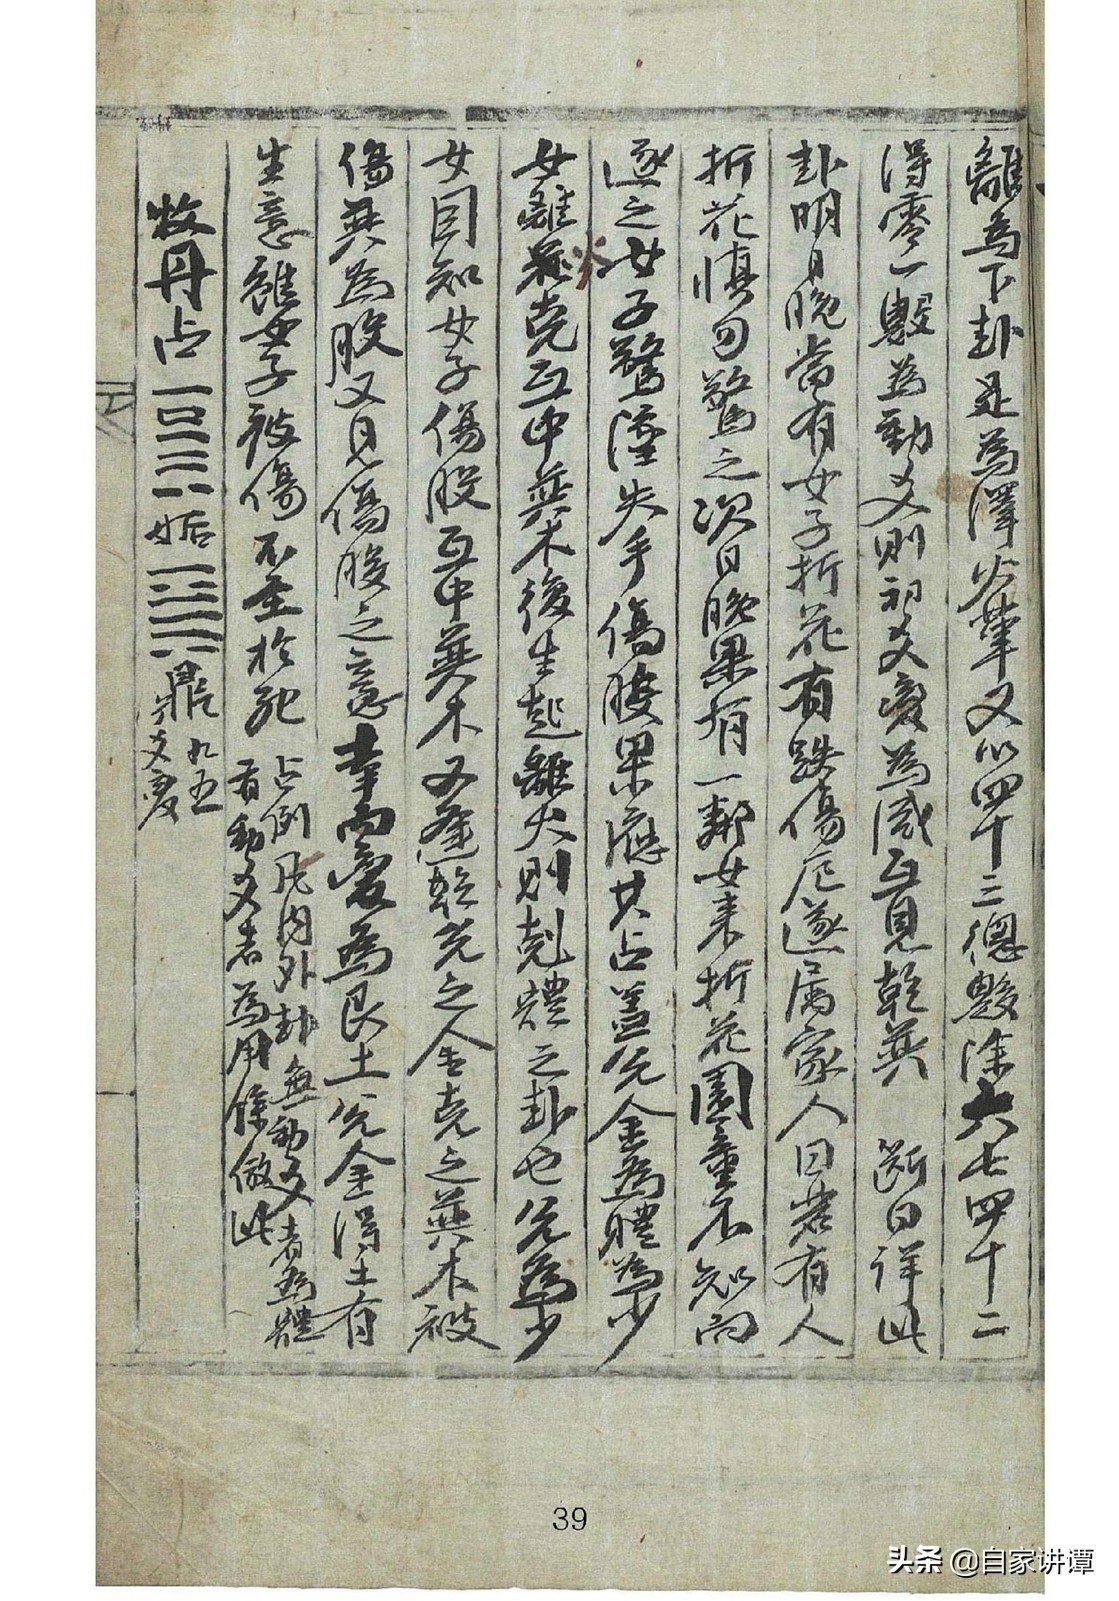 離為下卦是為澤火革又以四十三總數除六七四十二
得零一數為動爻則初爻變為咸互見乾巽 斷曰詳此
卦明日晚當有女子折花有跌傷厄遂屬家人曰若有人
折花慎勿驚之次日晚果有一鄰女來折花園童不知向
逐之女子驚墜失手傷股果應其占盖兌金為體為少
女離火克互中巽木復生起離火則剋體之卦也兌為少
女因知女子傷股互中巽木又逢乾兌之金克之巽木被
傷巽為股又見傷股之意幸而變為艮土兌金得土有
生意雖女子被傷不至於死 占例凡內外卦無動爻者為體
有動爻者為用餘倣此
牧丹占 姤 鼎 九五
爻變
39
头条 @自家讲谭